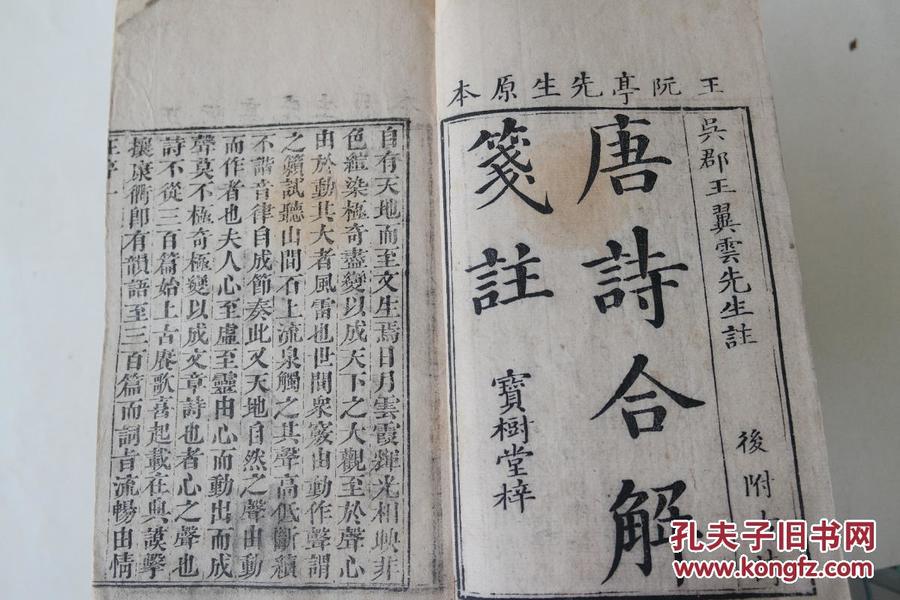 王阮亭先生原本
吳郡王翼雲先生註
後附
唐詩合解
箋註
寶樹堂梓
自有天地而至文生焉日月雲霞輝光相映菲
色繪染極奇盡變以成天下之大觀至於聲心
由於動其大者風雷也世間衆竅由動作聲謂
之籟試聽山間石上流泉觸之其聲高低斷續
不諧音律自成節奏此又天地自然之聲由動
而作者也夫人心至虛至靈由心而動出而成
聲莫不極奇極變以成文章詩也者心之聲也
詩不從三百篇始上古賡歌喜起載在典謨擊
攘康衢卽有韻語至三百篇而詞旨流暢由情
孔夫子旧书网
www.kongfz.com